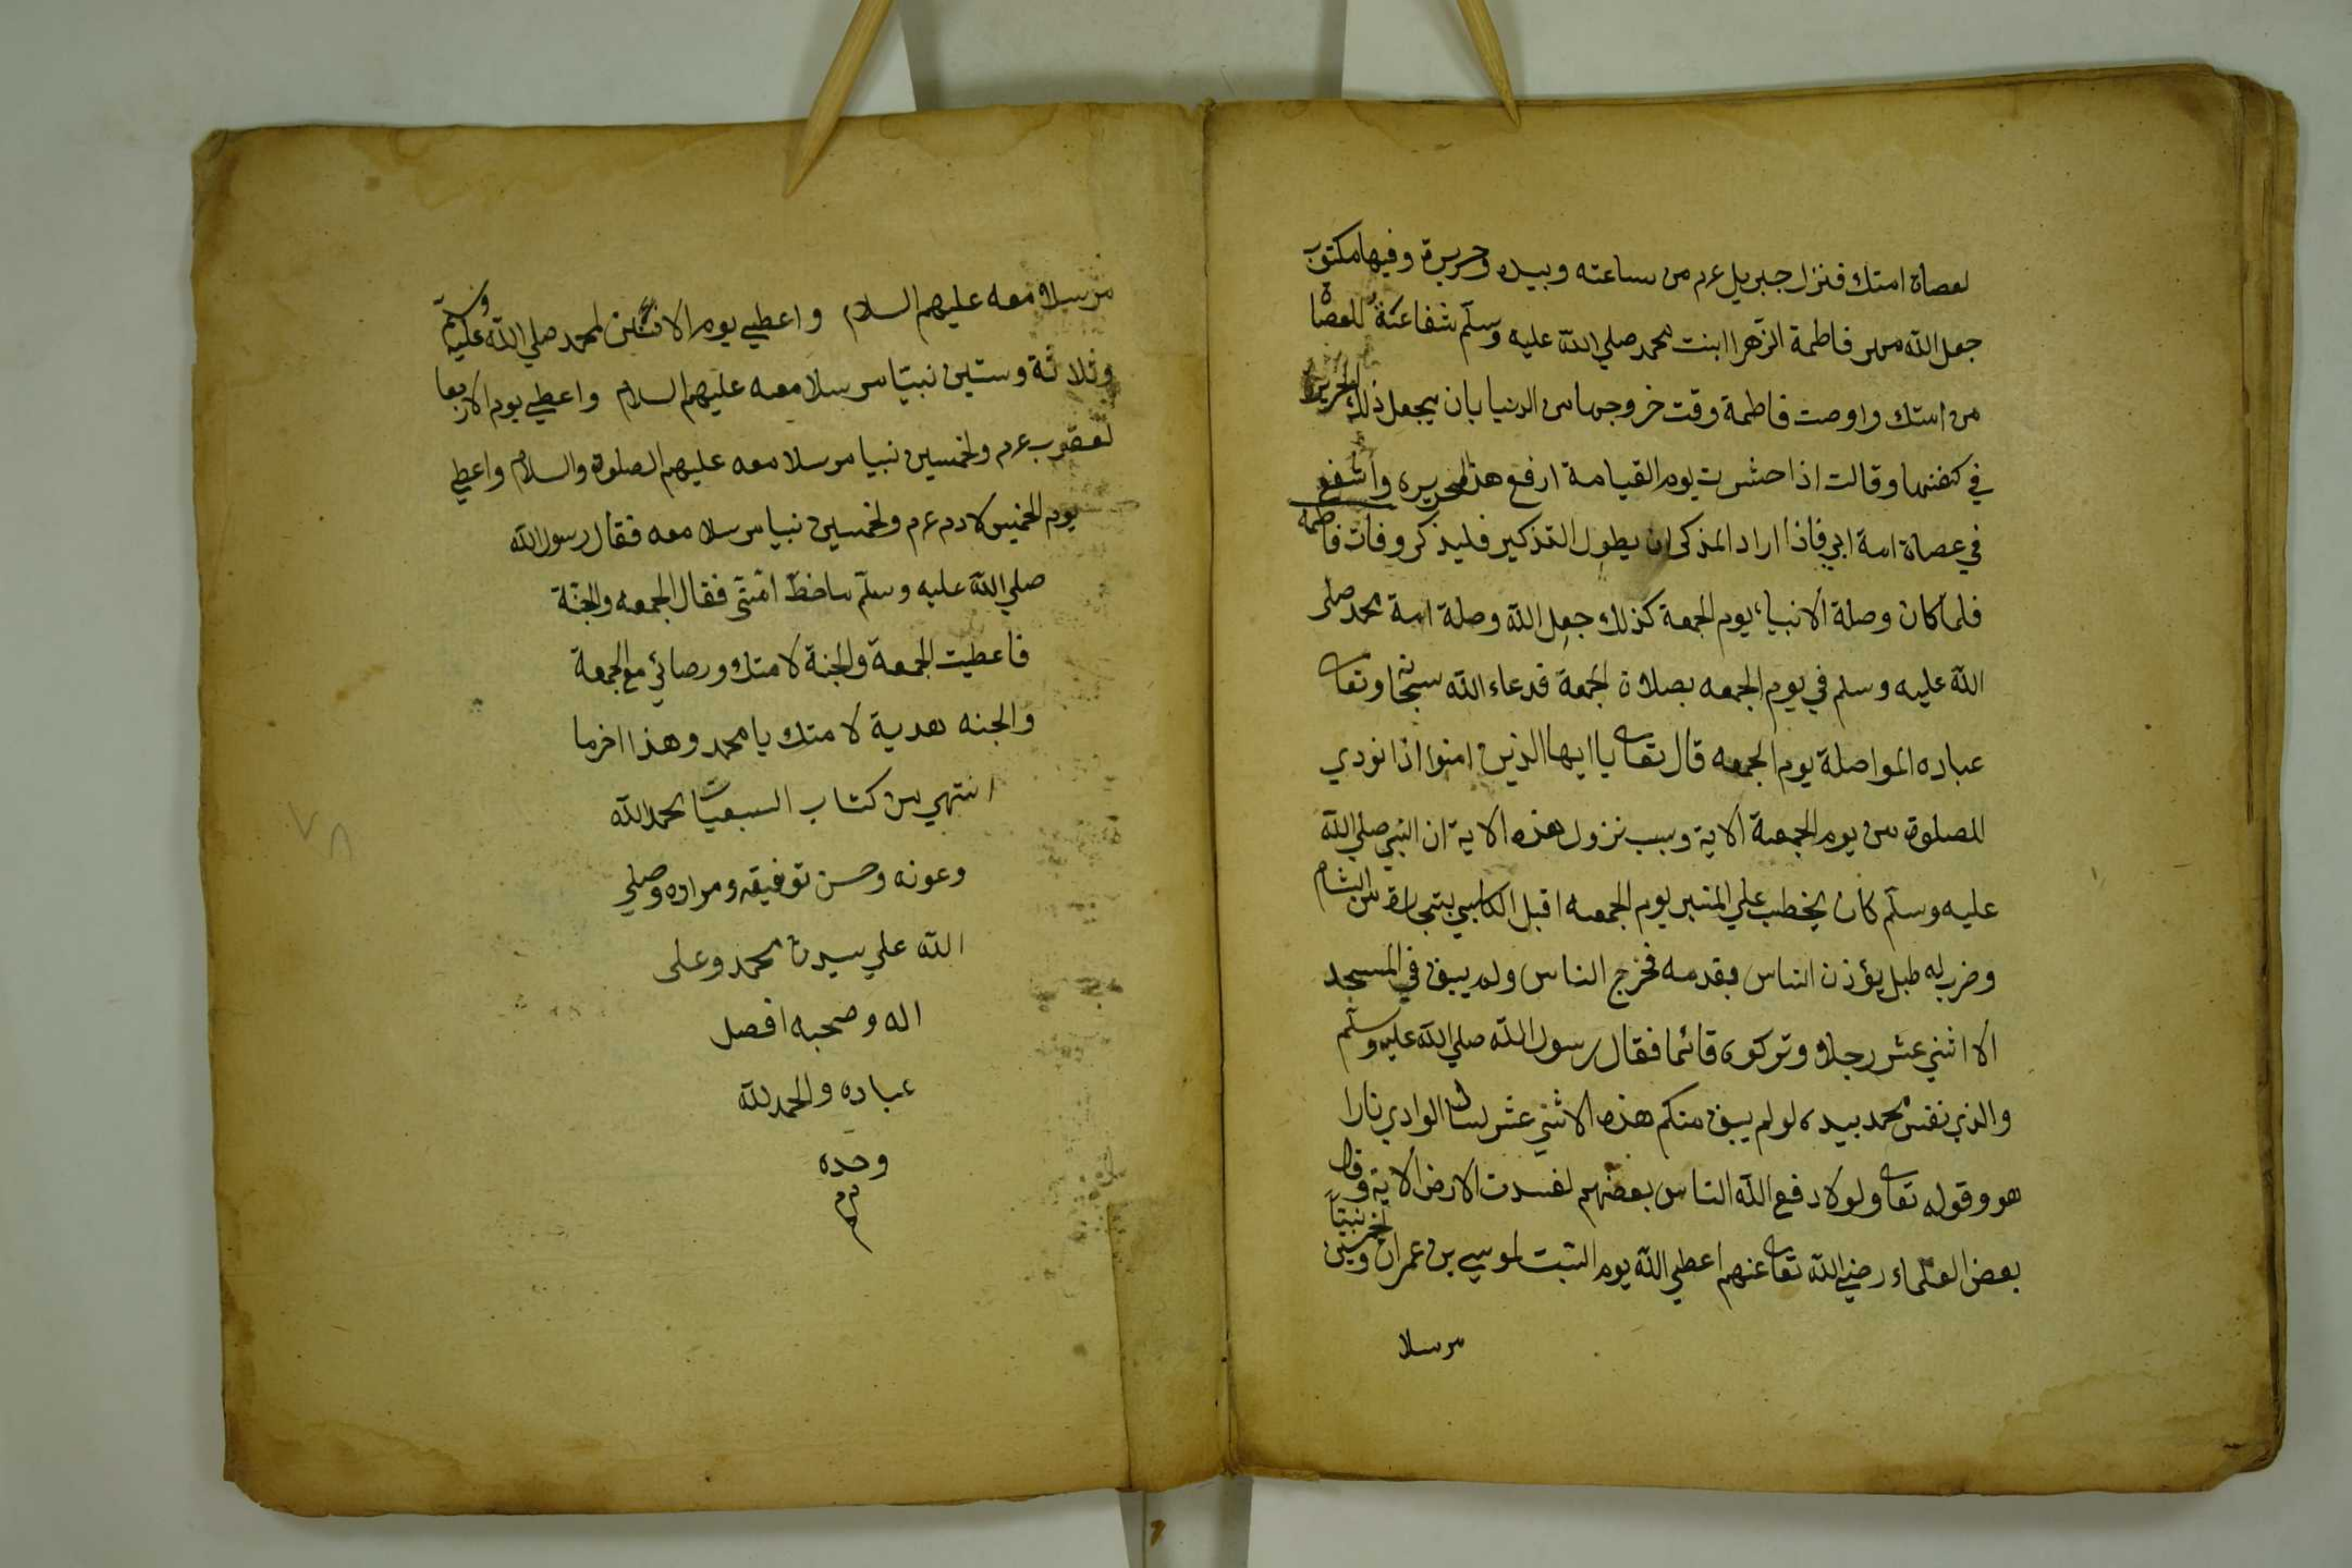 لعصاة امتك فنزل جبريل عم من ساعته وبيده حريرة وفيها مكتوب
جعل الله مهر فاطمة الزهرا ابنت محمد صلي الله عليه وسلم شفاعة للعصاة
من امتك واوصت فاطمة وقت خروجها من الدنيا بان يجعل ذلك الحرير
في كفنها وقالت اذا حشرت يوم القيامة ارفع هذه الحريره واشفع
في عصاة امة ابي فاذا اراد المذكر ان يطول التذكير فليذكر وفات فاطمة
فلما كان وصلة الانبياء يوم الجمعة كذلك جعل الله وصلة امة محمد صلى
الله عليه وسلم في يوم الجمعه بصلاة الجمعة فدعاء الله سبحانه وتعا
عباده المواصلة يوم الجمعه قال تعا يا ايها الذين امنوا اذا نودي
للصلوة من يوم الجمعة الاية وسبب نزول هذه الاية ان النبي صلي الله
عليه وسلم كان يخطب علي المنبر يوم الجمعه اقبل الكلبي بتجارة من الشام
وضرب له طبل يؤذن الناس بقدمه فخرج الناس ولم يبق في المسجد
الا اثني عشر رجلا وتركوه قائما فقال رسول الله صلي الله عليه وسلم
والذي نفس محمد بيده لو لم يبق منكم هذه الاثني عشر لسال الوادي نارا
هو وقوله تعا ولولا دفع الله الناس بعضهم لفسدت الارض الاية وقال
بعض العلماء رضي الله تعا عنهم اعطي الله يوم السبت لموسي بن عمران وخمسين نبيا
مرسلا
مرسلا معه عليهم السلام واعطي يوم الاثنين لمحمد صلي الله عليه وسلم
وثلاثة وستين نبيا مرسلا معه عليهم السلام واعطي يوم الاربعا
لعقوب عم ولخمسين نبيا مرسلا معه عليهم الصلوة والسلام واعطي
يوم الخميس لادم عم ولخمسين نبيا مرسلا معه فقال رسول الله
صلي الله عليه وسلم ما حظ امتي فقال الجمعه والجنة
فاعطيت الجمعة والجنة لامتك ورضائي مع الجمعة
والجنه هدية لامتك يا محمد وهذا اخر ما
انتهي من كتاب السبعيات بحمد الله
وعونه وحسن توفيقه ومراده وصلي
الله علي سيدنا محمد وعلى
اله وصحبه افضل
عباده والحمد لله
وحده